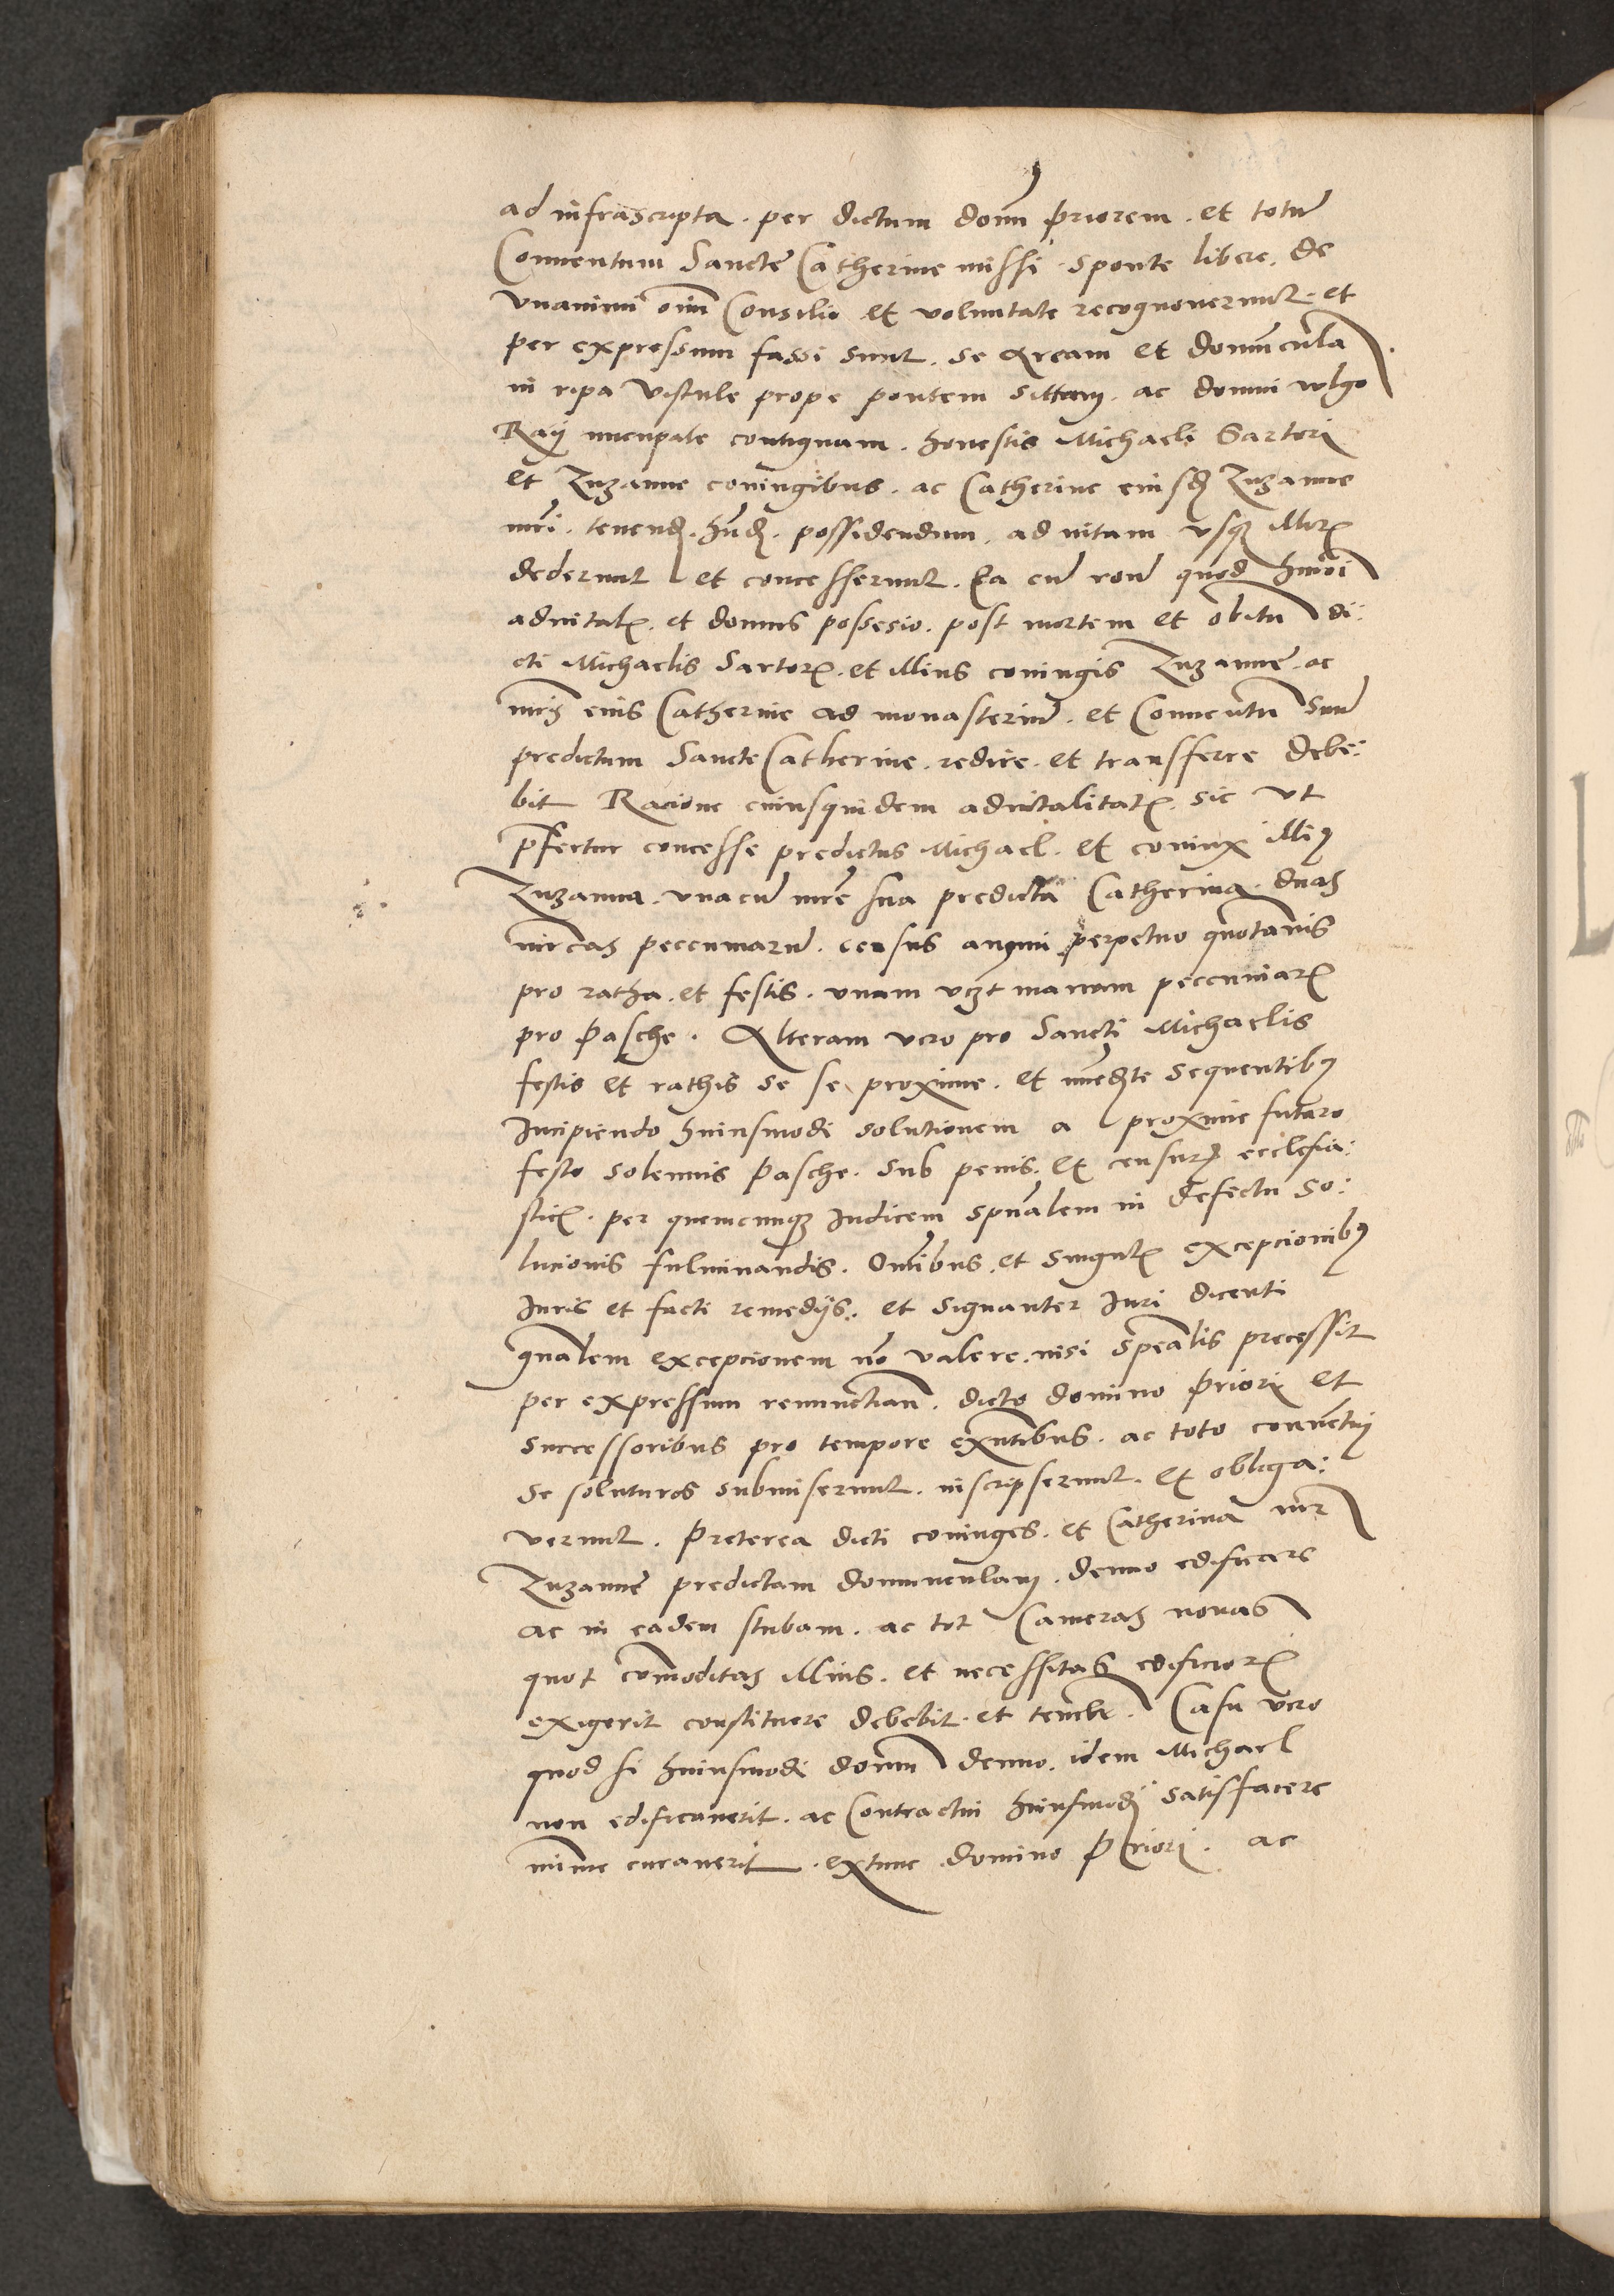 ad infrascripta. per dictum donū priorem. et totū
Conuentum Sancte Catherine missi. sponte libere. de
vnanimi oim Consilio et voluntate recognouerunt. et
per expressum fassi sunt. se Aream et domūcula
in ripa Vistule prope pontem sittam. ac domui wlgo
Raÿ nuncupate contiguam. honestis Michaeli Sartori
et Zuzanne coniugibus. ac Catherine eiusđ Zuzanne
mri. tenenđ. hnđ. possidendum. ad vitam vsq illorz
dederunt et concesserunt. Ea cū roñe quod hmōi
aduitalz. et domus possesio. post mortem et obitū di:
cti Michaelis Sartorz. et illius coniugis Zuzanne. ac
mris eius Catherine ad monasteriū. et Conuentū suū
predictum Sancte Catherine. redire. et transferre debe:
bit Racione cuiusquidem aduitalitatz. sic vt
p̄fertur concesse predictus Michael. et coniux illi9
Zuzanna. vnacū mre sua predicta Catherina. duas
mrcas peccuniarū. census annui perpetuo quotānis
pro ratha. et festis. vnam vczt marcam peccuniarz
pro Pasche. Alteram vero pro Sancti Michaelis
festis et rathis se se proxime. et īmedte sequentib9
Incipiendo huiusmodi solutionem a proxime futuro
festo solennis Pasche. sub penis. et censurz ecclesia:
sticz. per quemcunqz Iudicem spūalem in defectu so:
lucionis fulminandis. Omībus. et singulz excepcionib9
Iuris et facti remedÿs. et signanter Iuri dicenti
gnalem excepcionem nō valere. nisi spealis precessit
per expressum renunctian̄. dicto domino Priori et
successoribus pro tempore exn̄tibus. ac toto conuētui
se soluturos submiserunt. inscripserunt. et obliga:
verunt. Preterea dicti coniuges. et Catherina mr
Zuzanne predictam domunculam. denuo edificare
ac in eadem stubam. ac tot Cameras nouas
quot cōmoditas illius. et necessitas edificiorz
exigerit constituere debebit. et teneb̄r. Casu vero
quod si huiusmodi domū denuo. idem Michael
non edificauerit. ac Contractui huiusmodi satisfacere
mīme curauerit. extunc domino Priori. ac